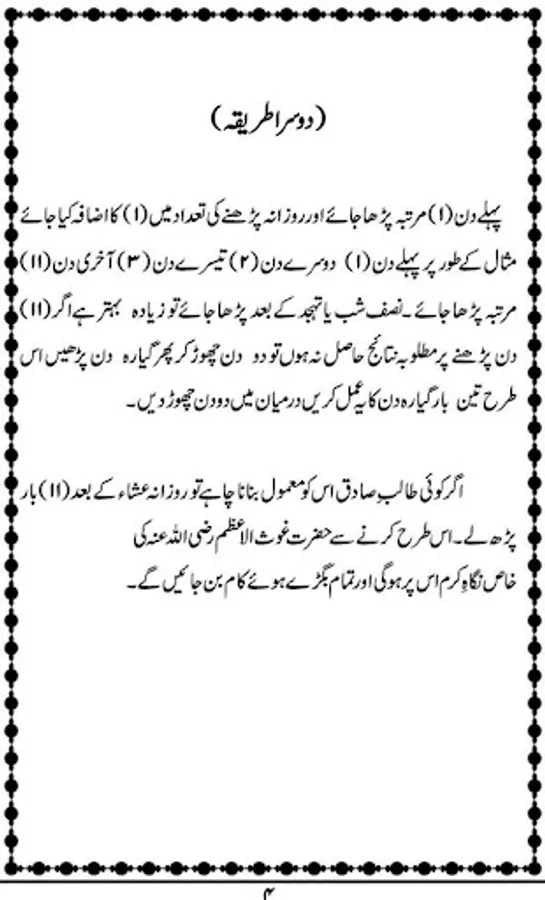 (دوسرا طریقہ)
پہلے دن (۱) مرتبہ پڑھا جائے اور روزانہ پڑھنے کی تعداد میں (۱) کا اضافہ کیا جائے
مثال کے طور پر پہلے دن (۱) دوسرے دن (۲) تیسرے دن (۳) آخری دن (۱۱)
مرتبہ پڑھا جائے۔ نصف شب یا تہجد کے بعد پڑھا جائے تو زیادہ بہتر ہے اگر (۱۱)
دن پڑھنے پر مطلوبہ نتائج حاصل نہ ہوں تو دو دن چھوڑ کر پھر گیارہ دن پڑھیں اس
طرح تین بار گیارہ دن کا یہ عمل کریں درمیان میں دو دن چھوڑ دیں۔
اگر کوئی طالبِ صادق اس کو معمول بنانا چاہے تو روزانہ عشاء کے بعد (۱۱) بار
پڑھ لے۔ اس طرح کرنے سے حضرت غوث الاعظم رضی اللہ عنہ کی
خاص نگاہِ کرم اس پر ہوگی اور تمام بگڑے ہوئے کام بن جائیں گے۔
۴